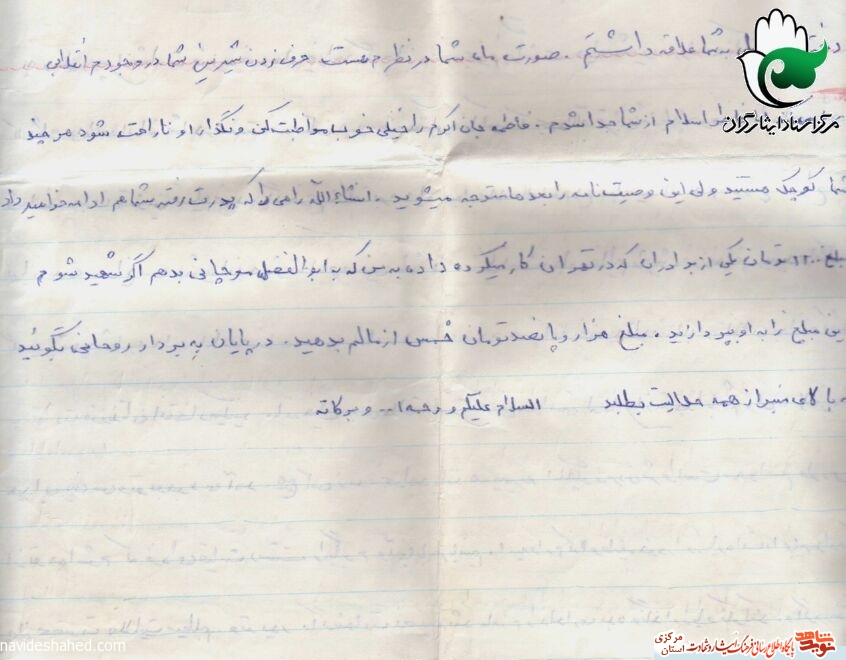 به شما علاقه داشتم . صورت ماه شما در نظرم هست حرف زدن شیرین شما در وجودم انقلابی
اسلام از شما جدا شدم . فاطمه جان اکرم را خیلی خوب مواظبت کن و نگذار او ناراحت شود هر چند
شما کوچک هستید ولی این وصیت نامه را بعدها متوجه میشوید . انشاءالله راهی را که پدرت رفته شما هم ادامه خواهید داد
مبلغ تومان یکی از برادران که در تهران کار میکرده داده به من که به ابوالفضل بدهم اگر شهید شوم
این مبلغ را به او بپردازید . مبلغ هزار و پانصد تومان خمس از مالم بدهید . در پایان به برادر روحانی بگوئید
بالای منبر از همه حلالیت بطلبد السلام علیکم و رحمه ا... و برکاته
مرکز اسناد ایثارگران
navideshahed.com
نوید شاهد
پایگاه اطلاع رسانی فرهنگ ایثار و شهادت
استان مرکزی